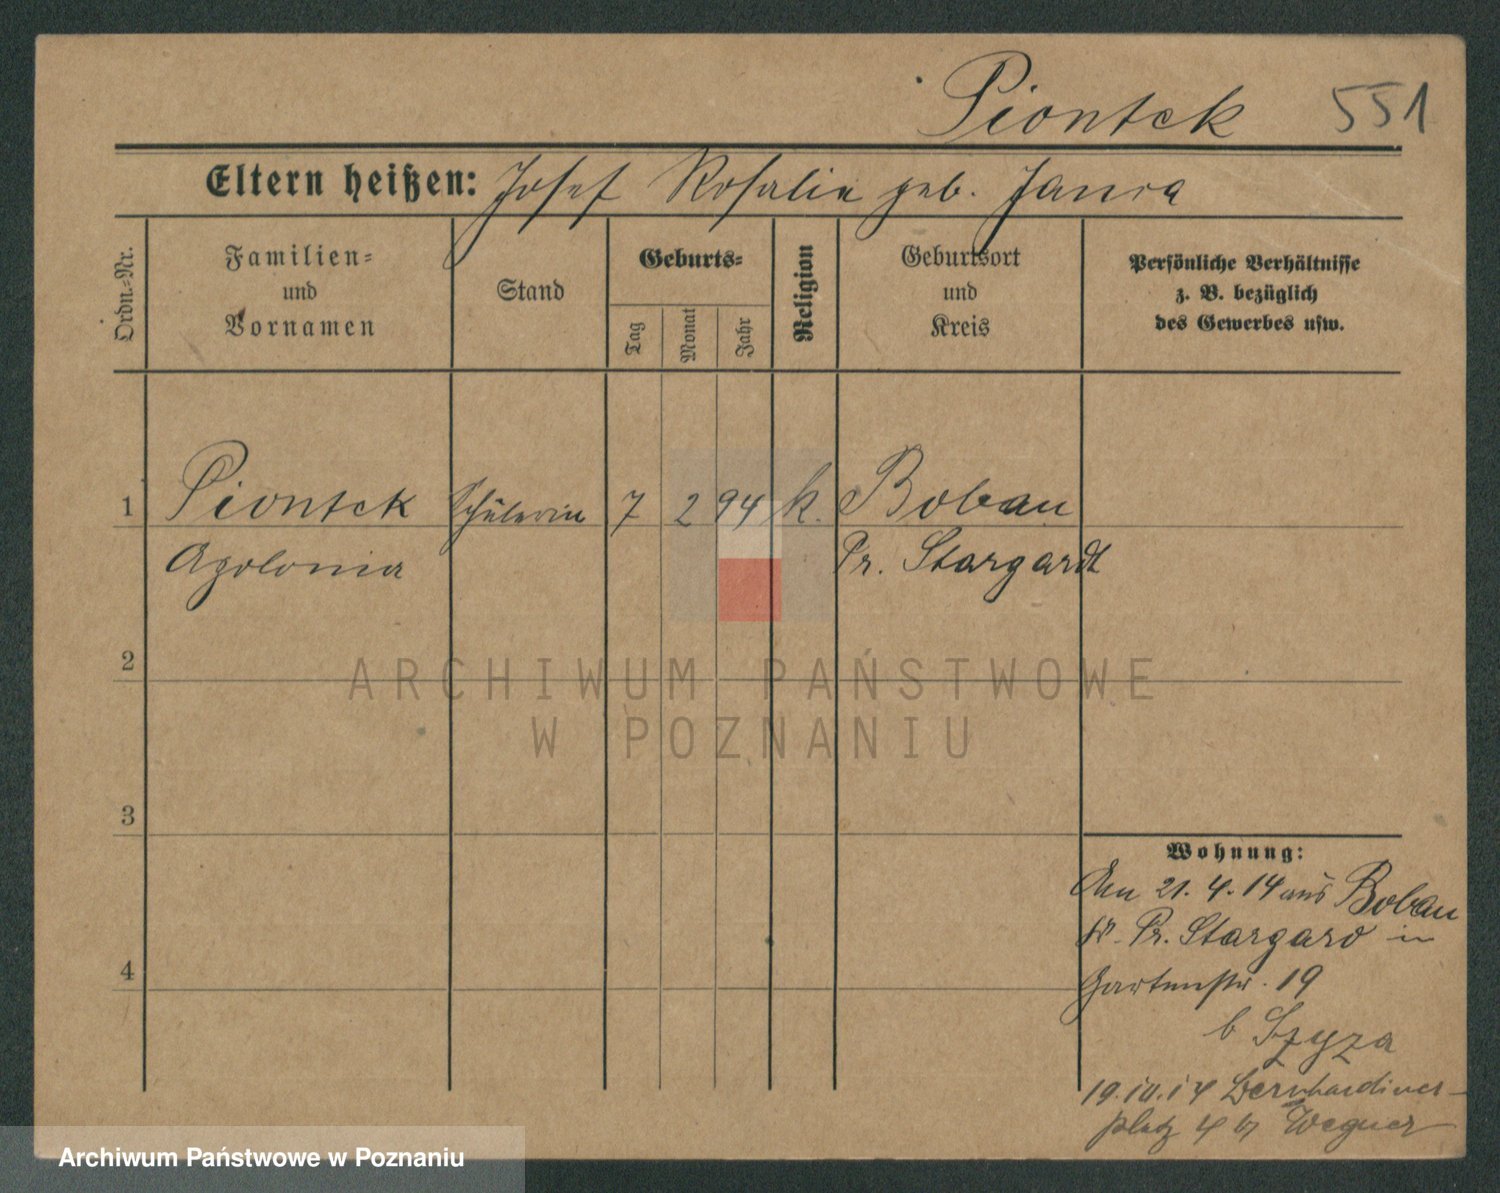 Piontek 551
Eltern heißen: Josef Rosalie geb. Janra
Ordn.-Nr.
Familien-
und
Vornamen
Stand
Geburts-
Tag
Monat
Jahr
Religion
Geburtsort
und
Kreis
Persönliche Verhältnisse
z. B. bezüglich
des Gewerbes usw.
1 Piontek Schülerin 7 2 94 k. Bobau
Apolonia Pr. Stargardt
2
ARCHIWUM PAŃSTWOWE
W POZNANIU
3
Wohnung:
Am 21.4.14 aus Bobau
Kr. Pr. Stargard in
4
Gartenstr. 19
b Szyza
19.10.14 Bernhardiner-
platz 4 b Wegner
Archiwum Państwowe w Poznaniu